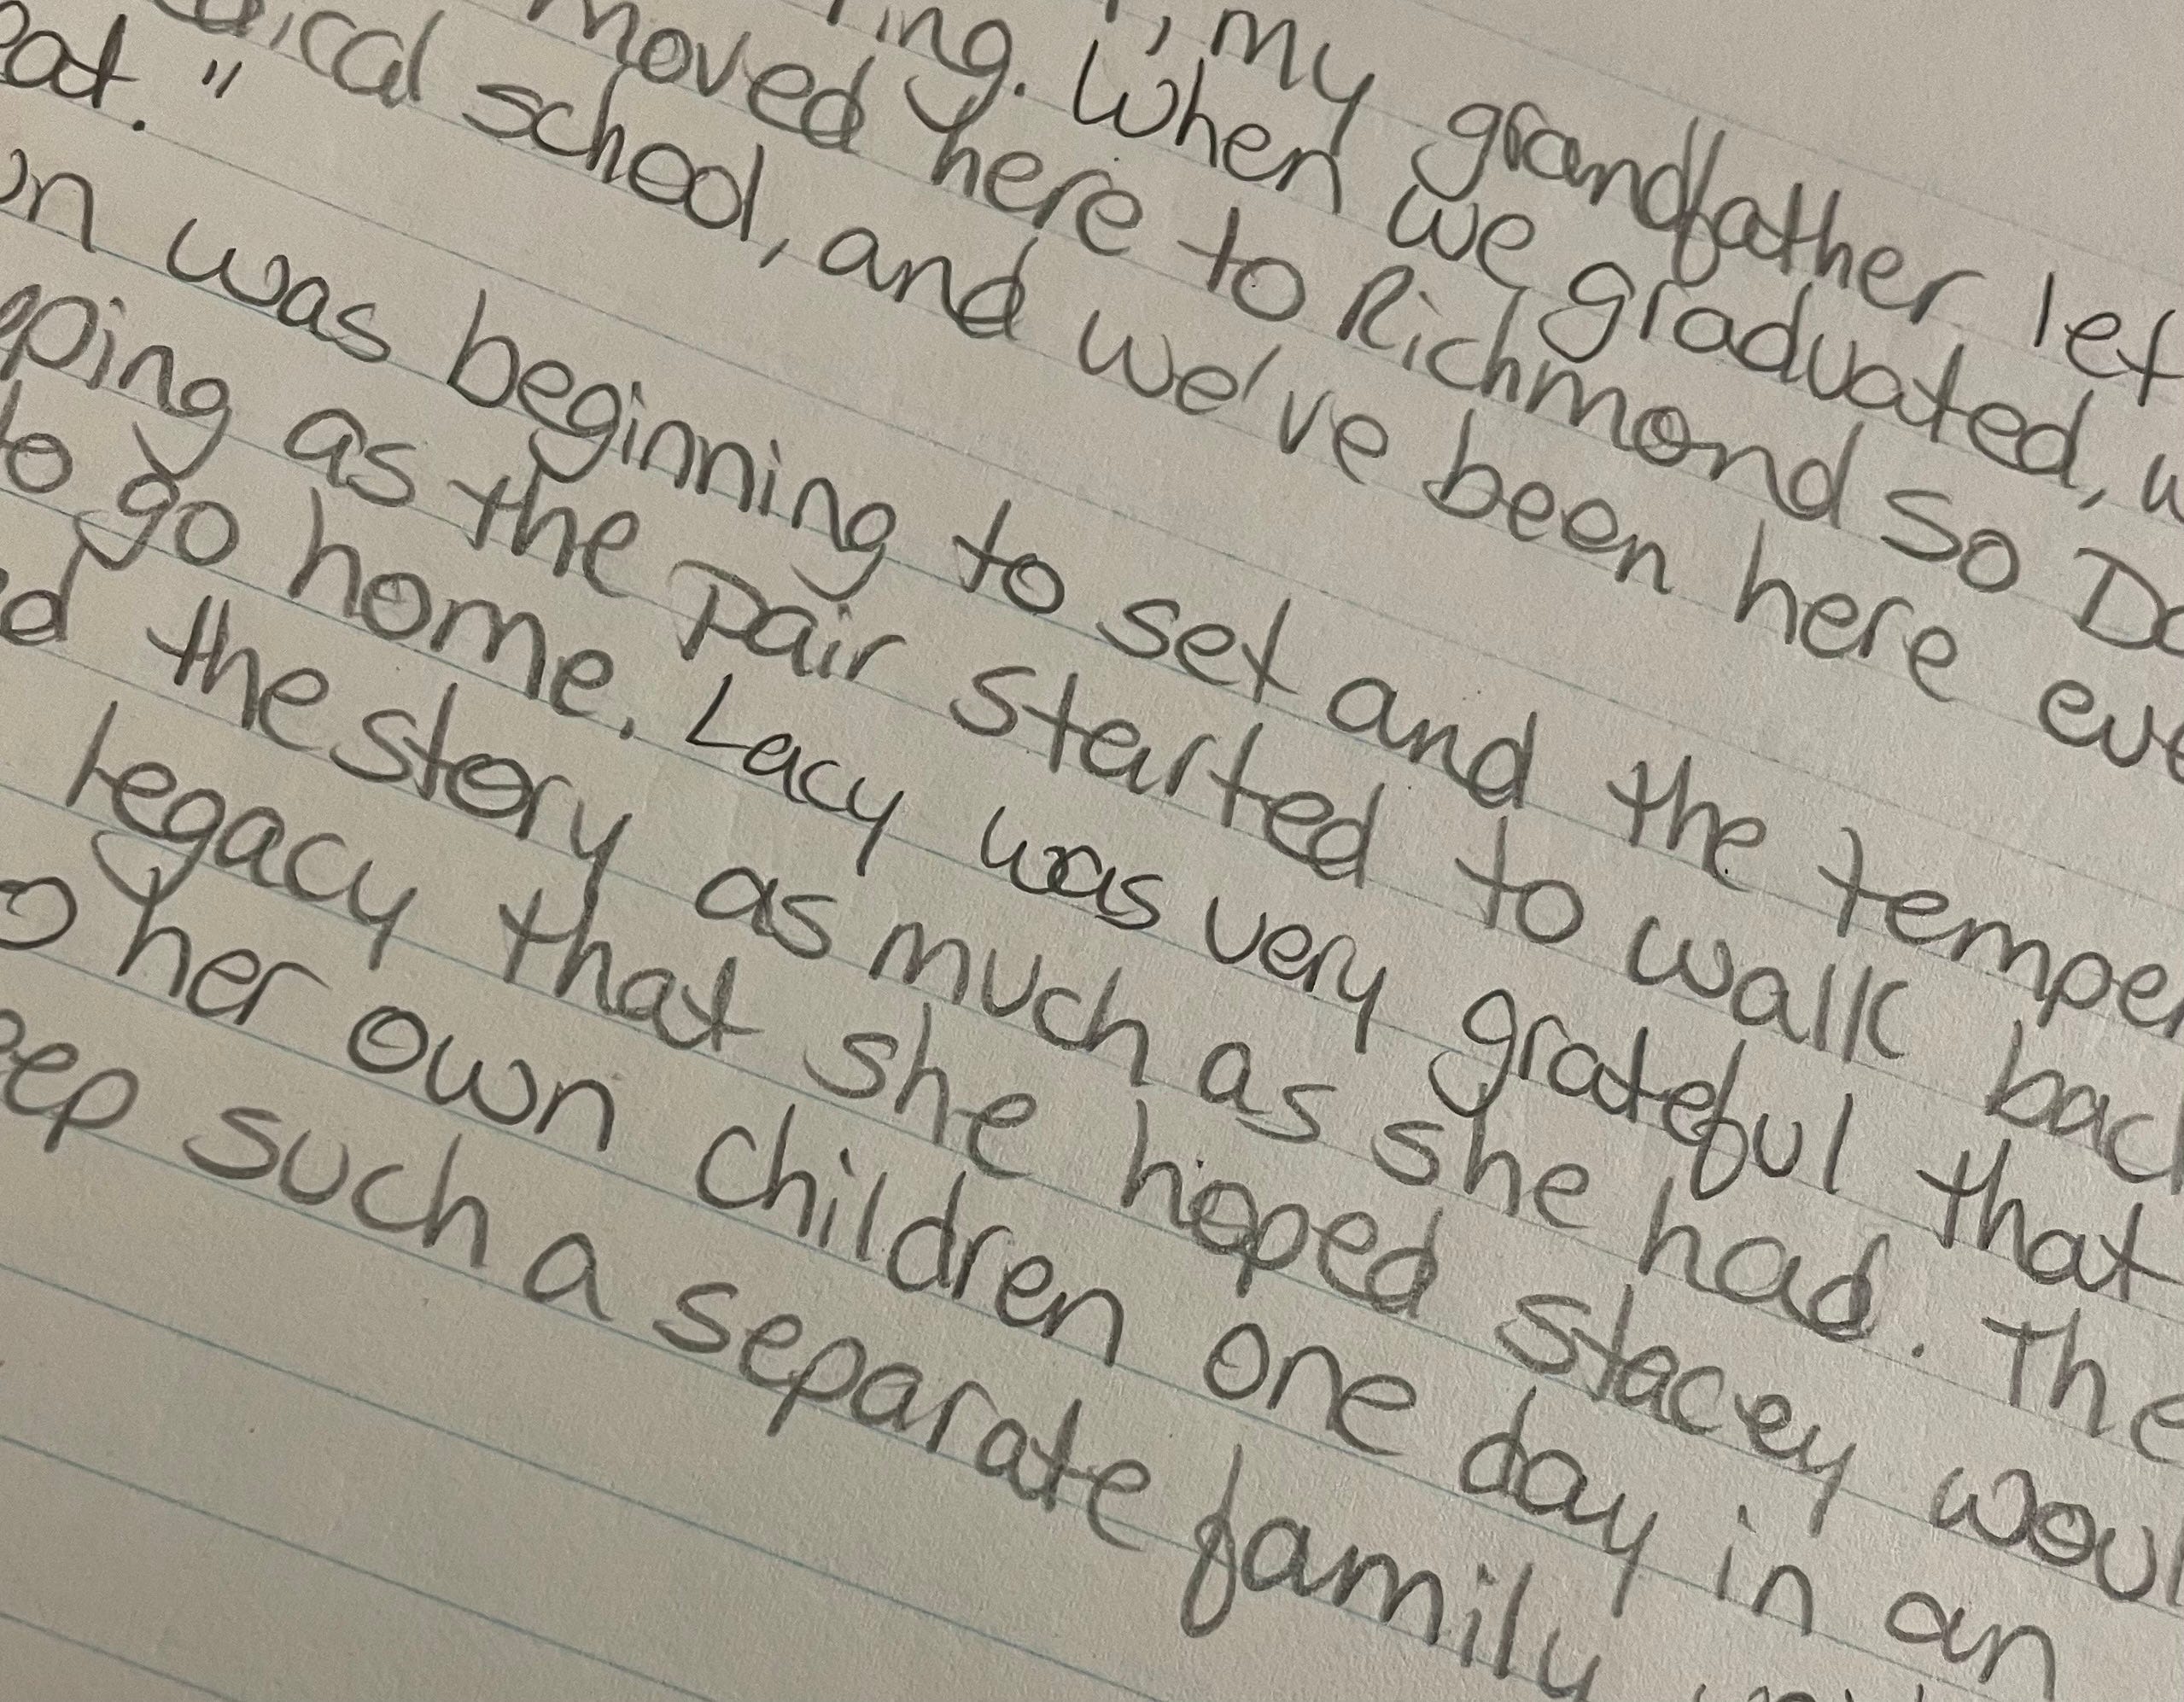 , my grandfather let
ing. When we graduated, w
moved here to Richmond so Do
dical school, and we've been here eve
eat."
on was beginning to set and the temper
pping as the Pair started to walk back
to go home. Lacy was very grateful that
d the story as much as she had. The
legacy that she hoped Stacey woul
o her own children one day in an
eep such a separate family